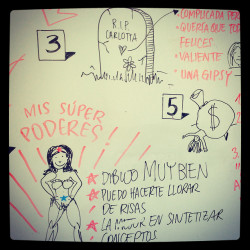 R.I.P.
CARLOTTA
COMPLICADA
QUERÍA QUE TO
FELICES
VALIENTE
UNA GIPSY
3
5
$
MIS SÚPER
PODERES!
DIBUJO MUY BIEN
PUEDO HACERTE LLORAR
DE RISAS
LA MEJOR EN SINTETIZAR
CONCEPTOS